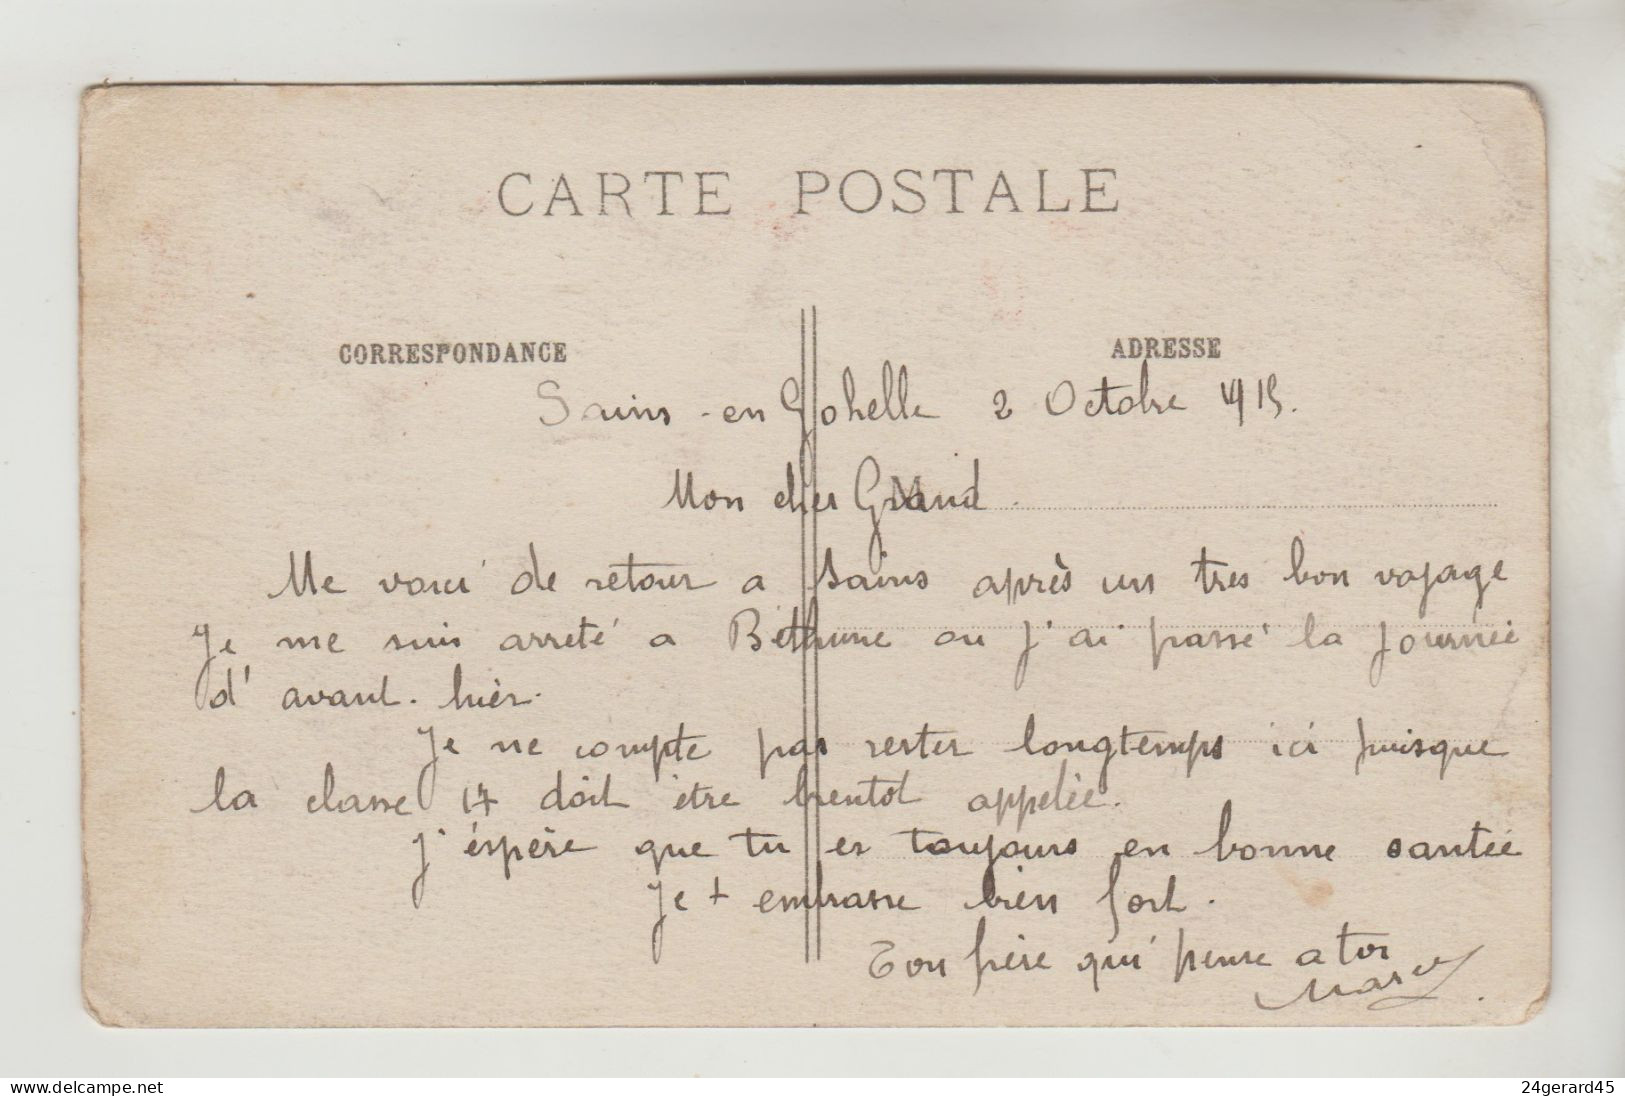 CARTE POSTALE
CORRESPONDANCE
ADRESSE
Sains-en Gohelle 2 Octobre 1915.
Mon cher Grand.
Me voici de retour a Sains après un tres bon voyage
Je me suis arreté a Béthune ou j'ai passé la journée
d'avant-hièr.
Je ne compte pas rester longtemps ici puisque
la classe 17 doit être bientot appelée.
J'éspère que tu es toujours en bonne santée
Je t embrasse bien fort.
Ton frère qui pense a toi
Marcel
www.delcampe.net
24gerard45